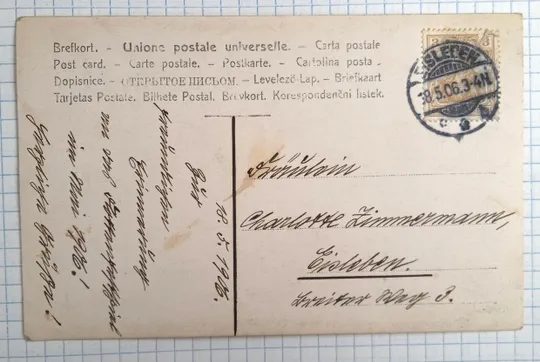 Brefkort. - Unione postale universelle. - Carta postale
Post card. - Carte postale. - Postkarte. - Cartolina posta .
Dopisnice. - ОТКРЫТОЕ ПИСЬМО. - Levelező-Lap. - Briefkaart
Tarjetas Postale. Bilhete Postal. Brevkort. Korespondenční listek.
EISLEBEN
18.5.06.3-4N.
Fräulein
Charlotte Zimmermann,
Eisleben.
Breiter Weg 3.
18. 5. 1906.
Zur
freundlichen
Erinnerung
an das
im Mai 1906.!
Herzliche Grüße!